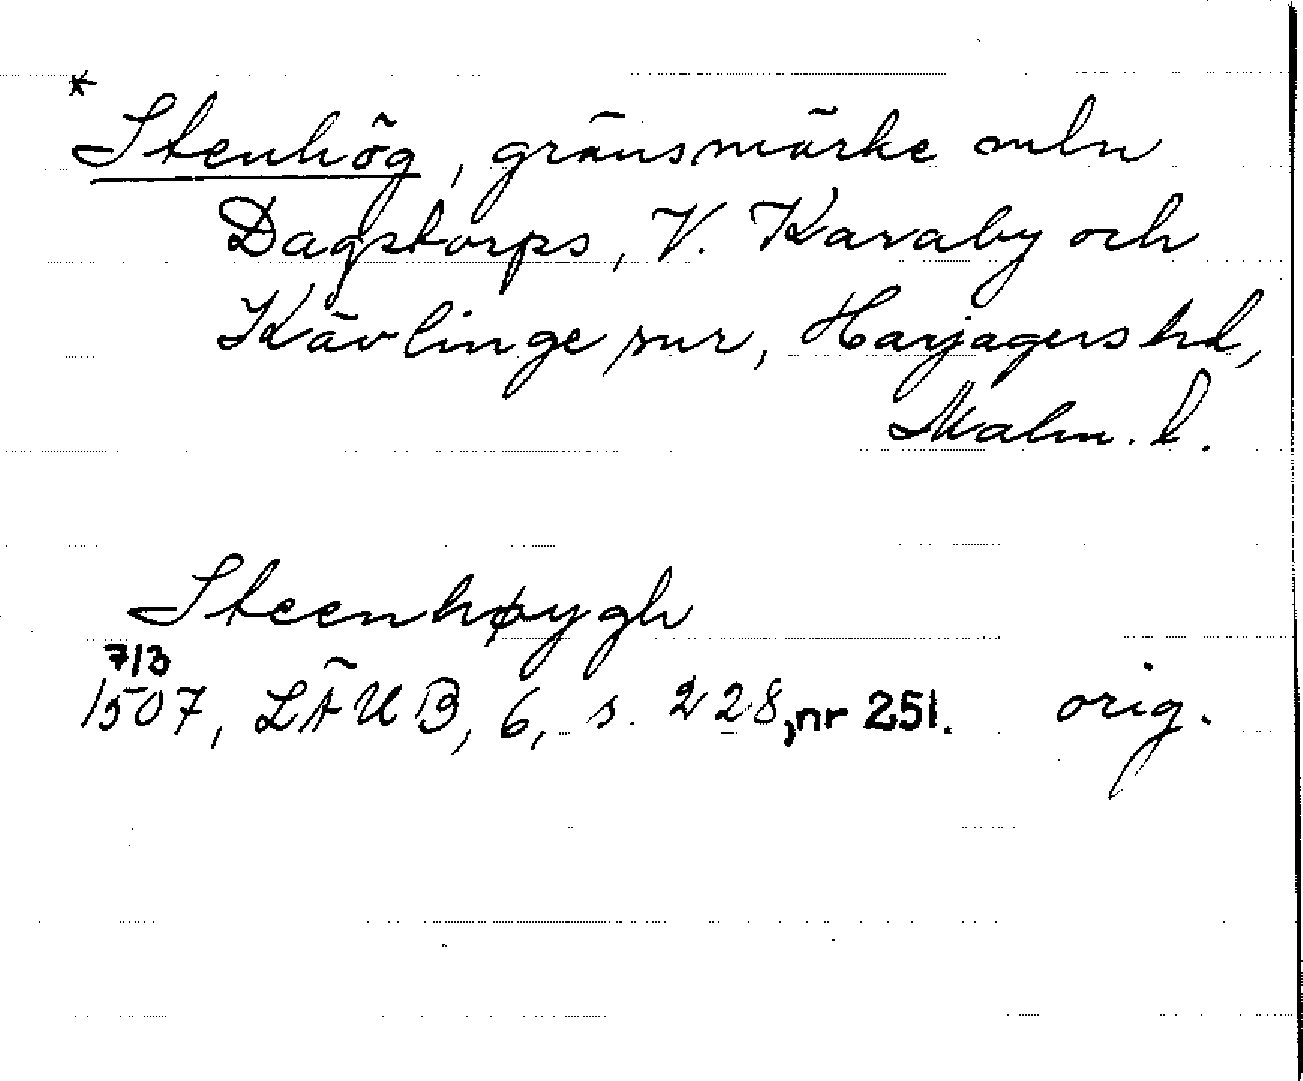 *
Stenhög, gränsmärke mln
Dagstorps, V. Karaby och
Kävlinge snr, Harjagers hd,
Malm. l.
Steenhøygh
7/3
1507, LÄUB, 6, s. 228, nr 251. orig.